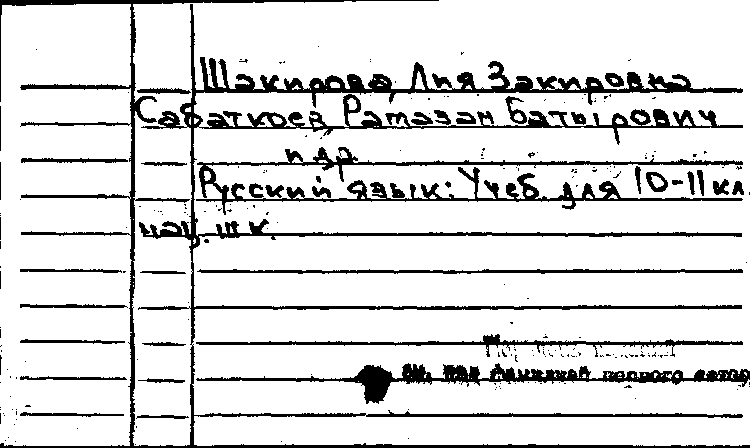 Шакирова, Лия Закировна
Сабаткоев, Рамазан Батырович
и др.
Русский язык: Учеб. для 10-11 кл.
нац. шк.
см. под фамилией первого автора